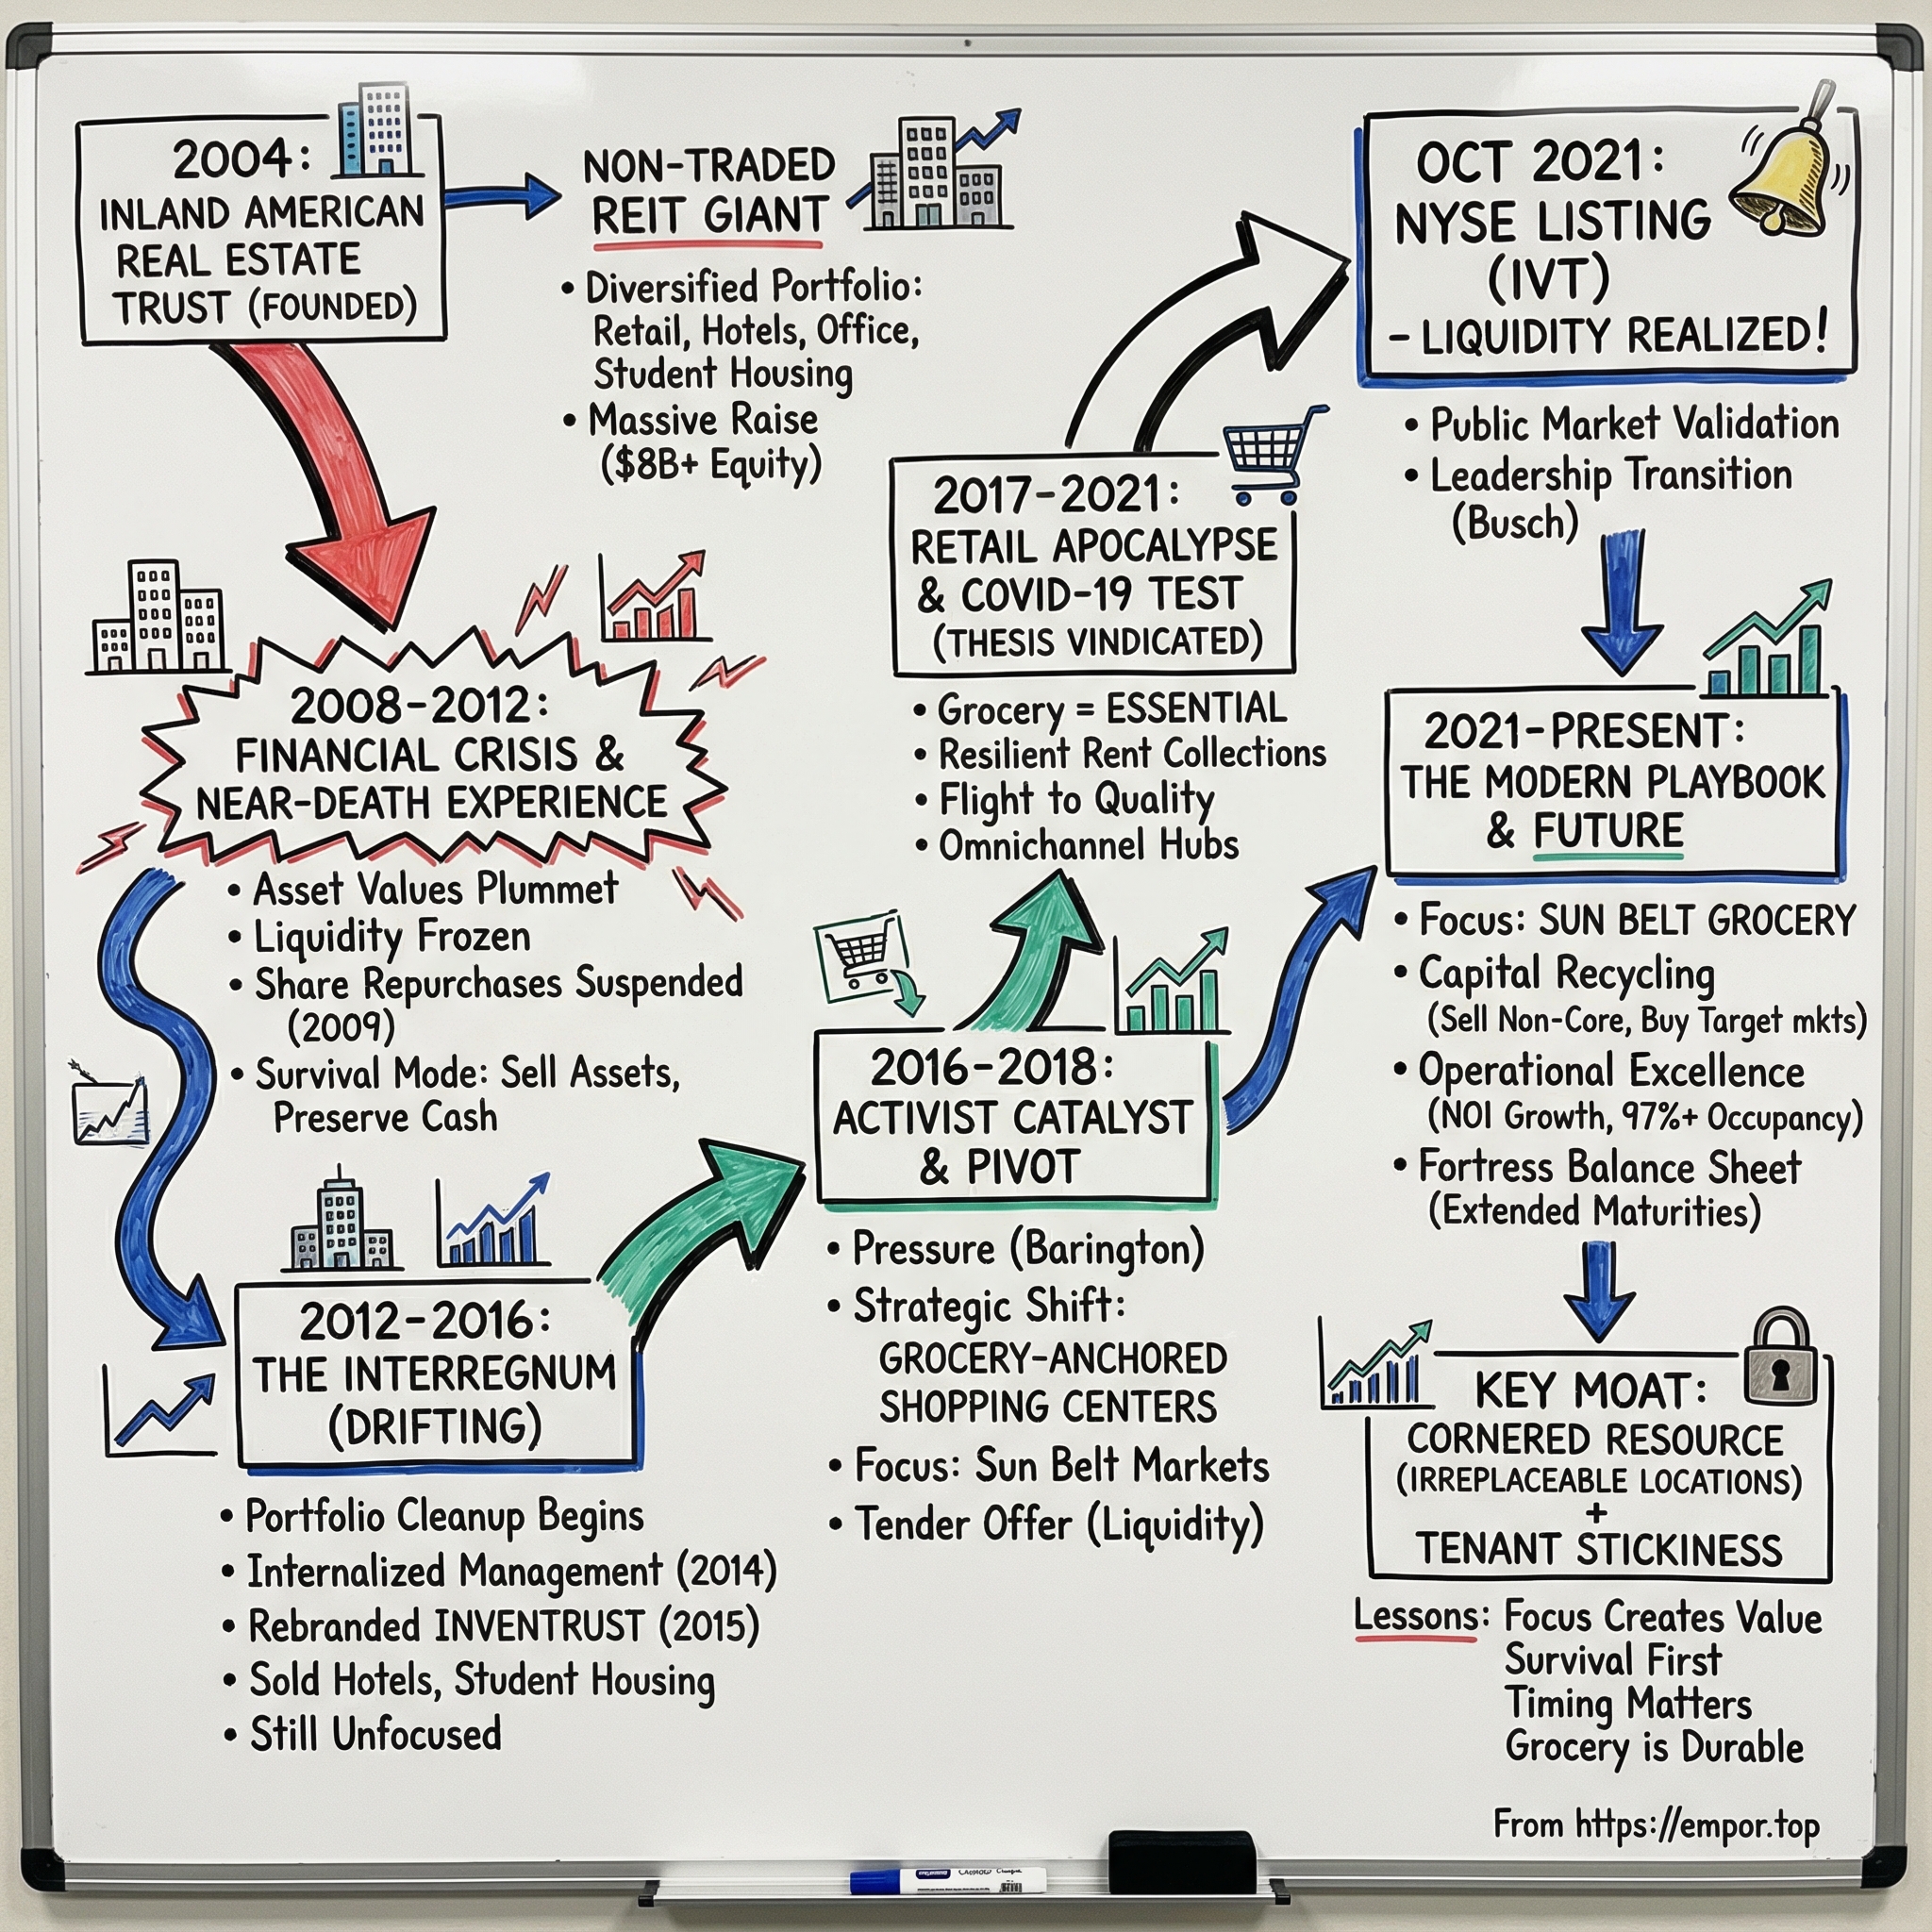 2004:
INLAND AMERICAN
REAL ESTATE
TRUST (FOUNDED)
NON-TRADED
REIT GIANT
• Diversified Portfolio:
Retail, Hotels, Office,
Student Housing
• Massive Raise
($8B+ Equity)
2008-2012:
FINANCIAL CRISIS &
NEAR-DEATH EXPERIENCE
• Asset Values Plummet
• Liquidity Frozen
• Share Repurchases Suspended
(2009)
• Survival Mode: Sell Assets,
Preserve Cash
2012-2016:
THE INTERREGNUM
(DRIFTING)
• Portfolio Cleanup Begins
• Internalized Management (2014)
• Rebranded INVENTRUST (2015)
• Sold Hotels, Student Housing
• Still Unfocused
2016-2018:
ACTIVIST CATALYST
& PIVOT
• Pressure (Barington)
• Strategic Shift:
GROCERY-ANCHORED
SHOPPING CENTERS
• Focus: Sun Belt Markets
• Tender Offer (Liquidity)
2017-2021:
RETAIL APOCALYPSE
& COVID-19 TEST
(THESIS VINDICATED)
• Grocery = ESSENTIAL
• Resilient Rent Collections
• Flight to Quality
• Omnichannel Hubs
OCT 2021:
NYSE LISTING
(IVT)
- LIQUIDITY REALIZED!
• Public Market Validation
• Leadership Transition
(Busch)
2021-PRESENT:
THE MODERN PLAYBOOK
& FUTURE
• Focus: SUN BELT GROCERY
• Capital Recycling
(Sell Non-Core, Buy Target mkts)
• Operational Excellence
(NOI Growth, 97%+ Occupancy)
• Fortress Balance Sheet
(Extended Maturities)
KEY MOAT:
CORNERED RESOURCE
(IRREPLACEABLE LOCATIONS)
+
TENANT STICKINESS
Lessons: Focus Creates Value
Survival First
Timing Matters
Grocery is Durable
From https://empor.top